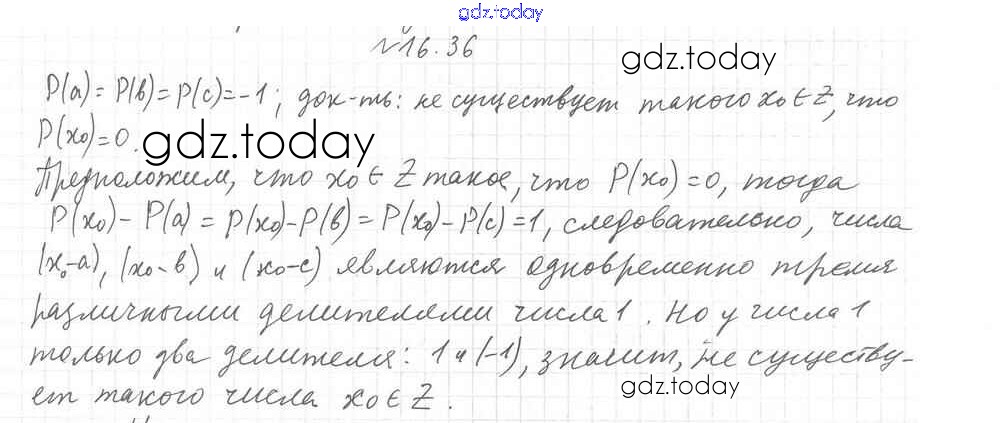 gdz.today
№16.36
gdz.today
P(a) = P(b) = P(c) = -1; док-ть: не существует такого x₀ ∈ Z, что
P(x₀) = 0.
gdz.today
Предположим, что x₀ ∈ Z такое, что P(x₀) = 0, тогда
P(x₀) - P(a) = P(x₀) - P(b) = P(x₀) - P(c) = 1, следовательно, числа
(x₀-a), (x₀-b) и (x₀-c) являются одновременно тремя
различными делителями числа 1. Но у числа 1
только два делителя: 1 и (-1), значит, не существу-
gdz.today
ет такого числа x₀ ∈ Z.